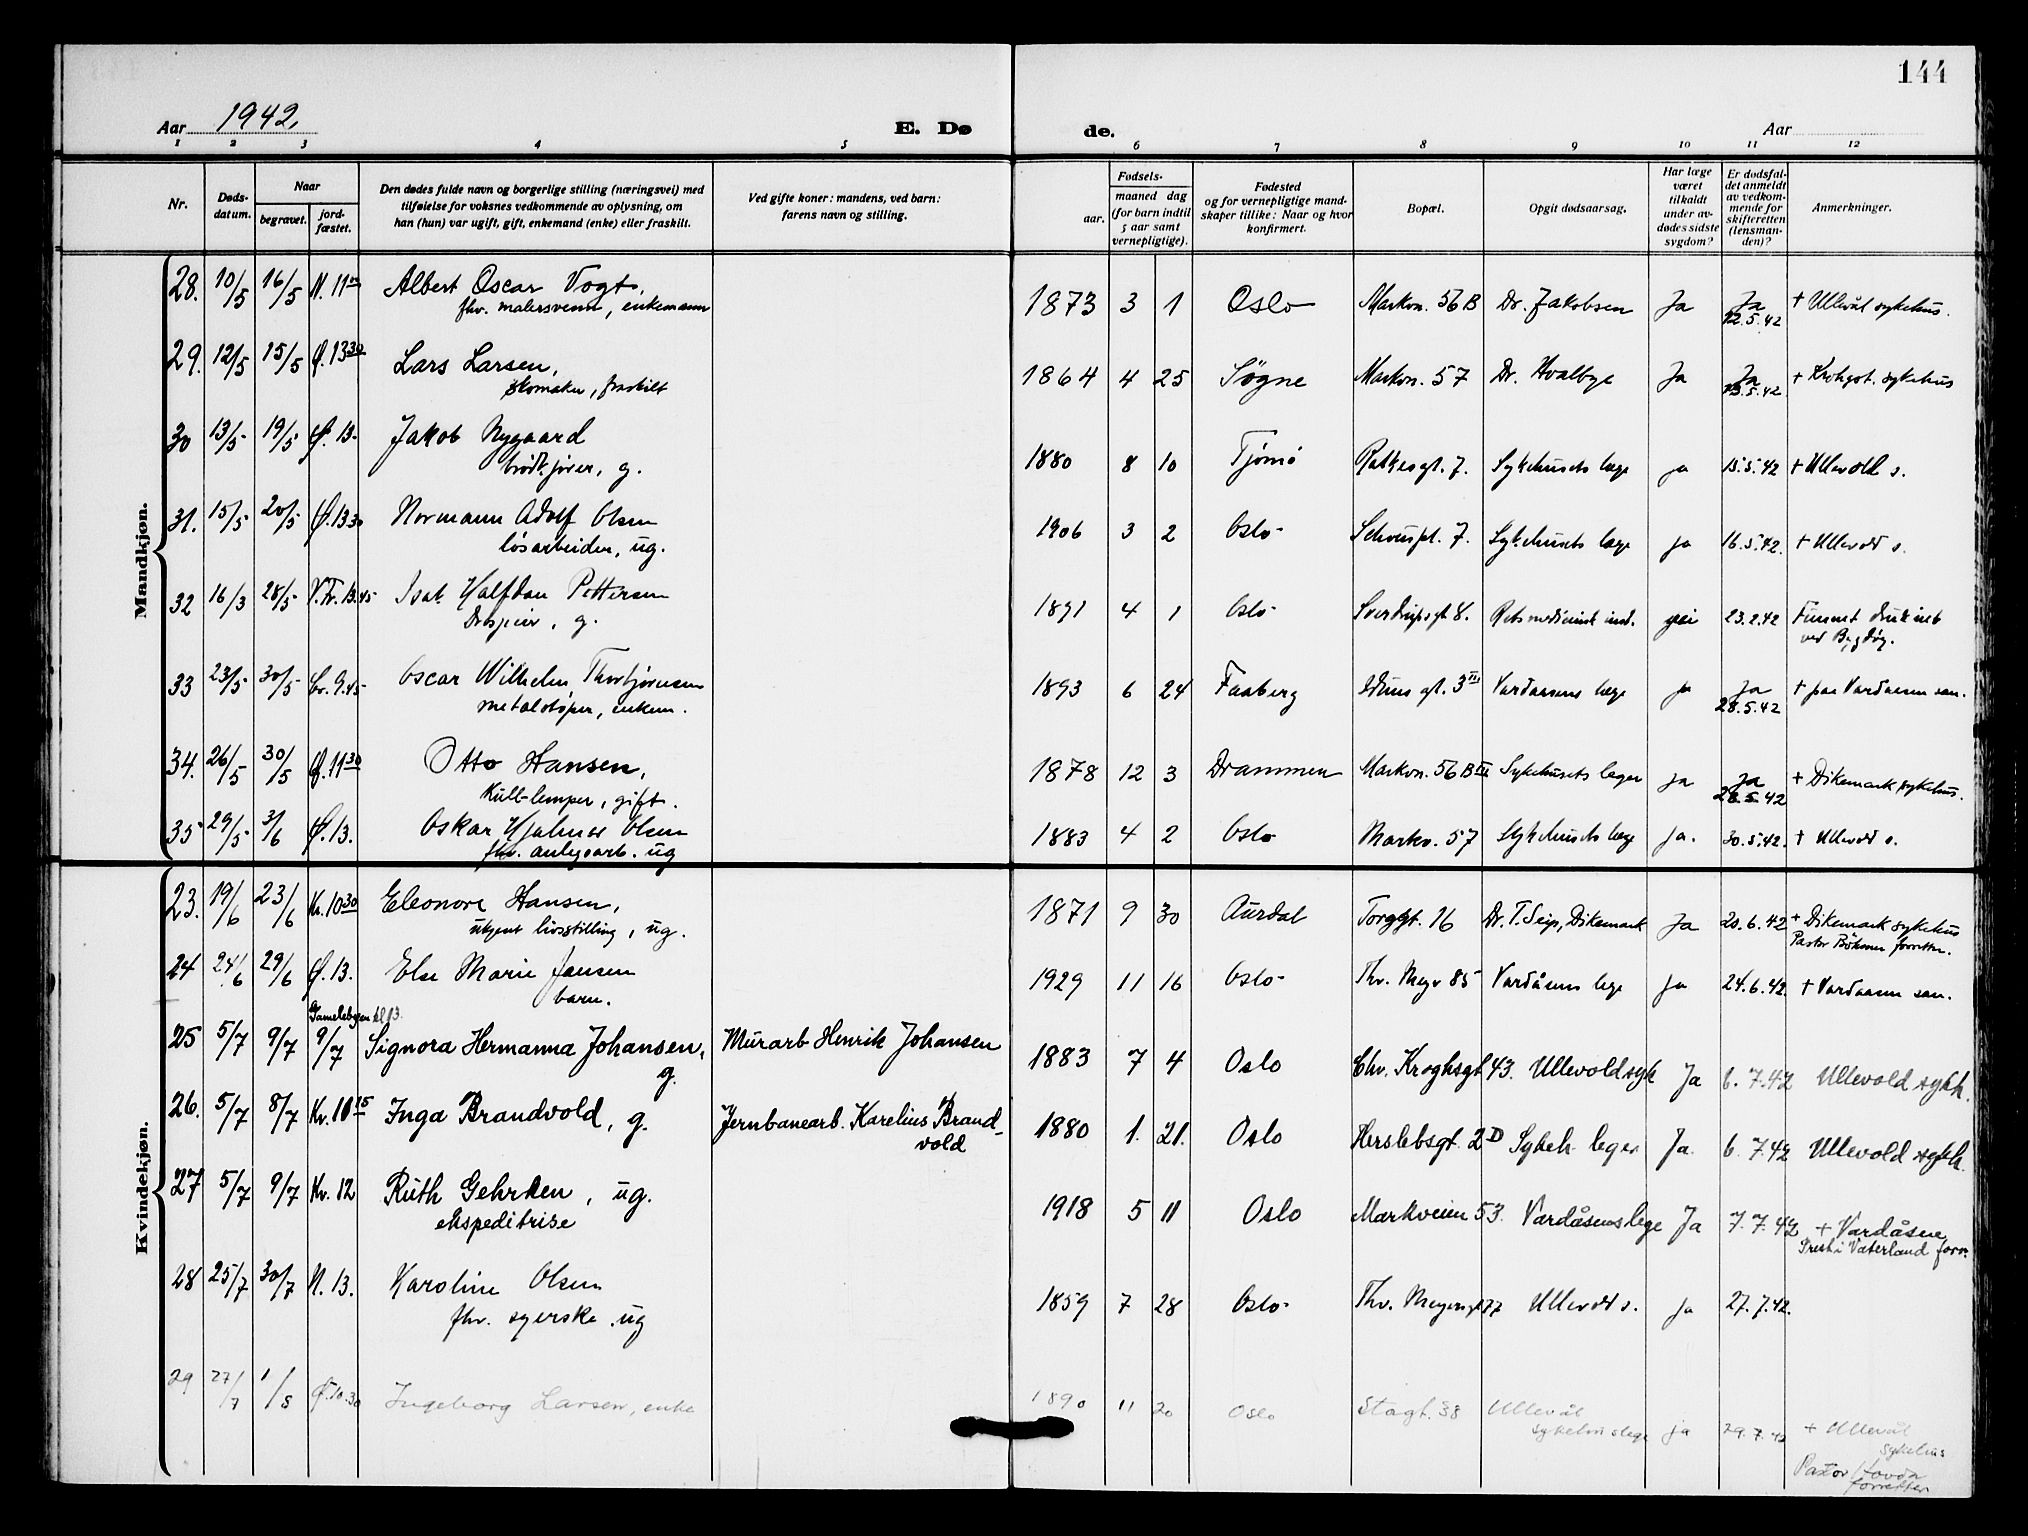 144
Aar 1942.
E. Dø
de.
Aar
1 2 3 4 5 6 7 8 9 10 11 12
Nr.
Døds-
datum.
Naar
begravet.
jord-
fæstet.
Den dødes fulde navn og borgerlige stilling (næringsvei) med
tilføielse for voksnes vedkommende av oplysning, om
han (hun) var ugift, gift, enkemand (enke) eller fraskilt.
Ved gifte koner: mandens, ved barn:
farens navn og stilling.
Fødsels-
aar.
maaned dag
(for barn indtil
5 aar samt
vernepligtige).
Fødested
og for vernepligtige mand-
skaper tillike: Naar og hvor
konfirmert.
Bopæl.
Opgit dødsaarsag.
Har læge
været
tilkaldt
under av-
dødes sidste
sygdom?
Er dødsfal-
det anmeldt
av vedkom-
mende for
skifteretten
(lensman-
den)?
Anmerkninger.
Mandkjøn.
28. 10/5 16/5 N. 11 00 Albert Oscar Vogt, 1873 3 1 Oslo Markvn. 56 B Dr. Jakobsen Ja Ja + Ullevål sykehus.
fhv. malersvenn, enkemann 12.5.42
29. 12/5 15/5 Ø. 13 30 Lars Larsen, 1864 4 25 Søgne Markvn. 57 Dr. Hvalbye Ja Ja + Krohgst. sykehus
skomaker, fraskilt 13.5.42
30 13/5 19/5 Ø. 13. Jakob Nygaard 1880 8 10 Tjømø 7. Sykehusets læge ja 15.5.42 + Ullevold s.
brødkjører, g.
31. 15/5 20/5 Ø. 13 30 Normann Adolf Olsen 1906 3 2 Oslo Schouspl. 7. Sykehusets læge ja 16.5.42. + Ullevold s.
løsarbeider, ug.
32 16/3 28/5 V.Kr. 13.45 Isak Halfdan Pettersen 1891 4 1 Oslo Sverdrupsgt 8. Retsmedicinsk inst. nei 23.2.42 Funnet druknet
g. ved Bygdøy.
33 23/5 30/5 Cr. 9.45 Oscar Wilhelm Thorbjørnsen 1893 6 24 Faaberg gt. 3 III Vardaasens læge ja ja + paa Vardaasen san.
metalstøper, enkem. 28.5.42
34. 26/5 30/5 Ø. 11 30 Otto Hansen, 1878 12 3 Drammen Markvn. 56 B III Sykehusets leger ja ja + Dikemark sykehus.
Kull-lemper, gift. 28.5.42
35 29/5 3/6 Ø. 13. Oskar Hjalmar Olsen 1883 4 2 Oslo Markv. 57 Sykehusets læge ja. 30.5.42. + Ullevold s.
fhv. anlegsarb. ug
Kvindekjøn.
23. 19/6 23/6 Kr. 10 30 Eleonore Hansen, 1871 9 30 Aurdal Torggt. 16 Dr. T. Seip, Dikemark Ja 20.6.42 + Dikemark sykehus
ukjent livsstilling, ug. Pastor Böhmer forrettn.
24 24/6 29/6 Ø. 13. Else Marie Jansen 1929 11 16 Oslo Thv. Meyr 85 Vardåsens lege Ja 24.6.42. + Vardaasen san.
barn.
Gamlebyen kl 13.
25 5/7 9/7 9/7 Signora Hermanna Johansen, Murarb Henrik Johansen 1883 7 4 Oslo Chr. Kroghsgt 43. Ullevold syk Ja 6.7.42 Ullevold sykh.
g.
26. 5/7 8/7 Kr. 10 15 Inga Brandvold, g. Jernbanearb. Karelius Brand- 1880 1. 21. Oslo Herslebsgt. 2 D Sykeh leger Ja. 6.7.42 Ullevold sykh.
vold
27 5/7 9/7 Kr. 12 Ruth Gehrken, ug. 1918 5 11 Oslo Markveien 53. Vardåsens lege Ja 7.7.42 + Vardåsen
ekspeditrise Prest i Vaterland forr.
28 25/7 30/7 N. 13. Karoline Olsen 1859 7 28 Oslo Thv. Meyersgt 77 Ullevold s. ja 27.7.42.
fhv. syerske, ug
29 27/7 1/8 Ø. 10.30 Ingeborg Larsen, enke 1890 11 20 Oslo Stagt. 38 Ullevål
sykehuslege ja 29.7.42 + Ullevål
sykehus
Pastor Hovda
forretter